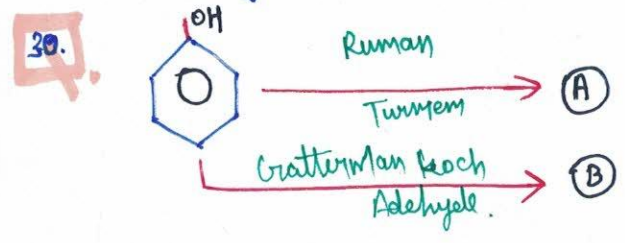 30.
OH
Ruman
Turmem
A
Gatterman Koch
Adehyde.
B